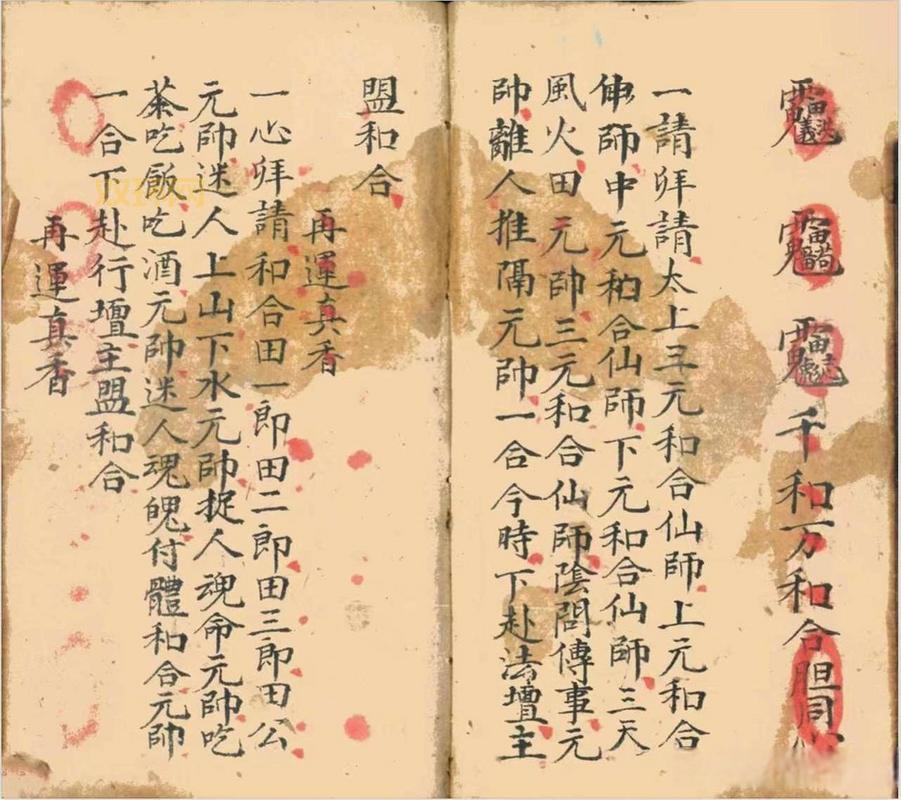 千和万和合胆同心
一請拜請太上三元和合仙師上元和合
師中元和合仙師下元和合仙師三天
風火田元帥三元和合仙師陰問傳事元
帥離人推隔元帥一合今時下赴法壇主
盟和合
再運真香
一心拜請和合田一郎田二郎田三郎田公
元帥迷人上山下水元帥捉人魂命元帥吃
茶吃飯吃酒元帥迷人魂魄付體和合元帥
一合下赴行壇主盟和合
再運真香